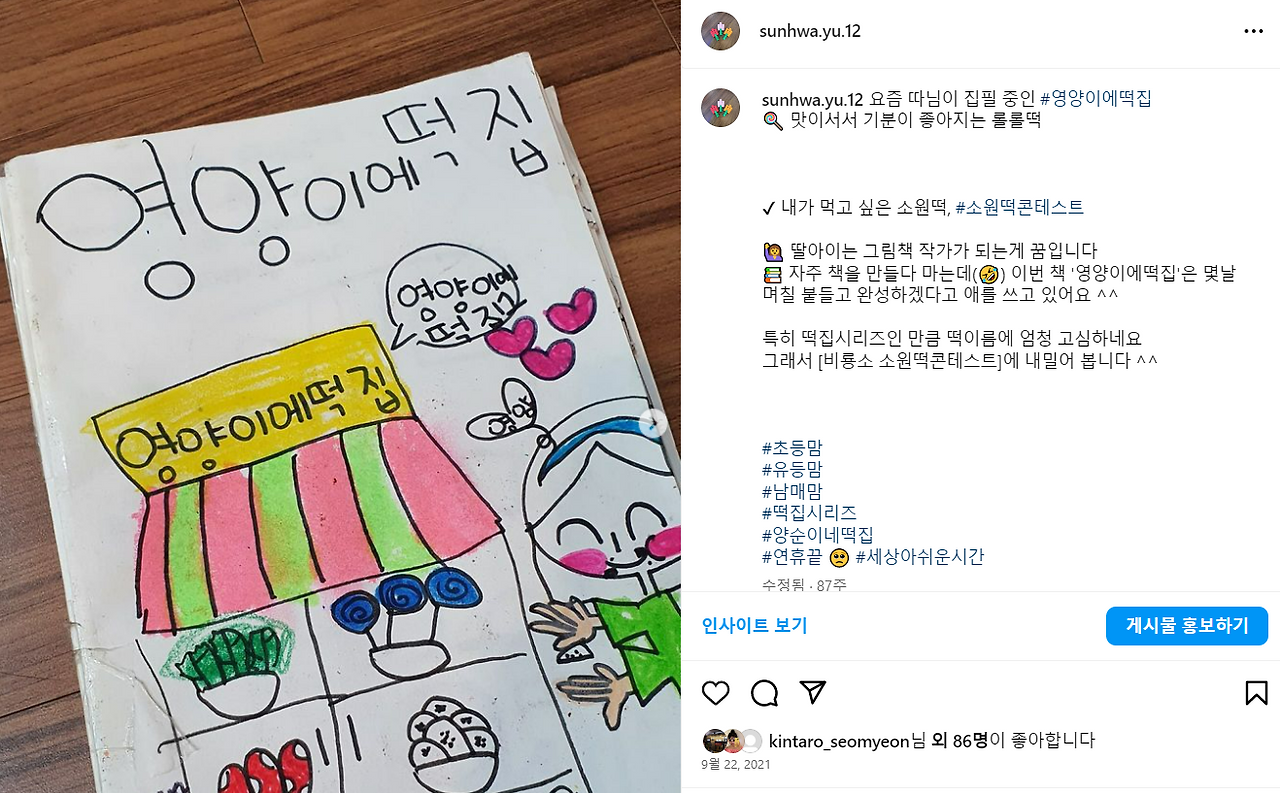 영양이에떡집
영양이에
떡집
영양이에떡집
영양
sunhwa.yu.12
sunhwa.yu.12 요즘 따님이 집필 중인 #영양이에떡집
🍭 맛이서서 기분이 좋아지는 롤롤떡
✔ 내가 먹고 싶은 소원떡, #소원떡콘테스트
🙋‍♀️ 딸아이는 그림책 작가가 되는게 꿈입니다
📚 자주 책을 만들다 마는데(🤣) 이번 책 '영양이에떡집'은 몇날
며칠 붙들고 완성하겠다고 애를 쓰고 있어요 ^^
특히 떡집시리즈인 만큼 떡이름에 엄청 고심하네요
그래서 [비룡소 소원떡콘테스트]에 내밀어 봅니다 ^^
#초등맘
#유등맘
#남매맘
#떡집시리즈
#양순이네떡집
#연휴끝 🥺 #세상아쉬운시간
수정됨 · 87주
인사이트 보기
게시물 홍보하기
kintaro_seomyeon님 외 86명이 좋아합니다
9월 22, 2021